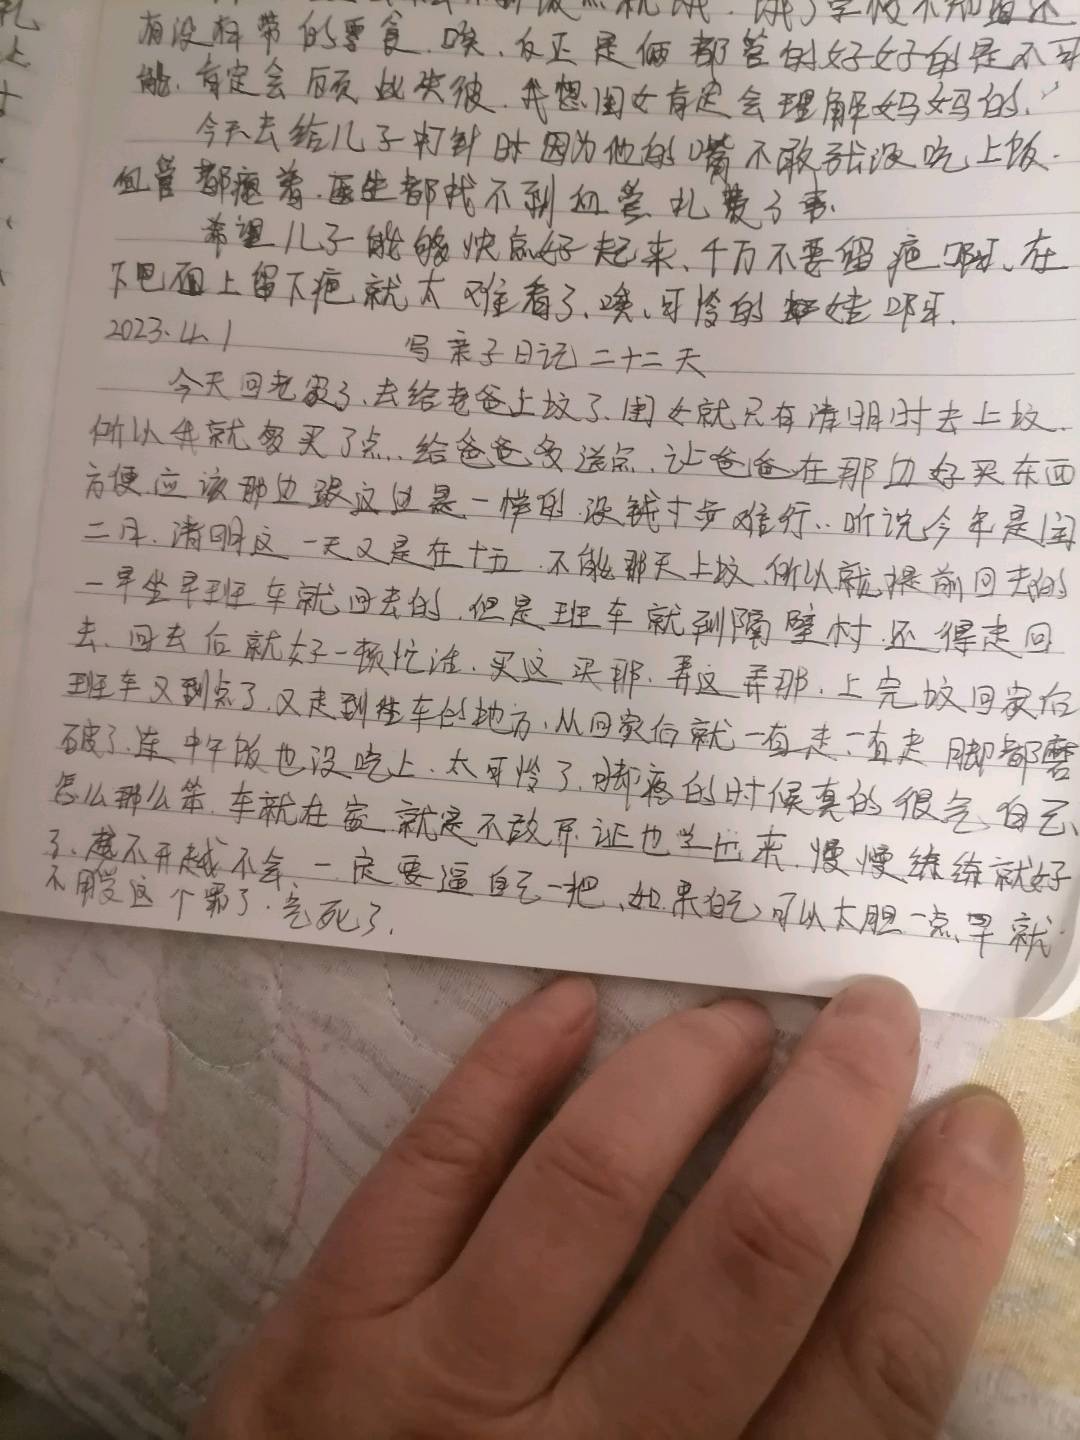 饿了学校不知道还
有没有带的零食.唉.反正是俩都管的好好的是不可
能.肯定会顾此失彼.我想闺女肯定会理解妈妈的.
今天去给儿子打针时因为他的嘴不敢张没吃上饭.
血管都瘪着.医生都找不到血管扎费了事.
希望儿子能够快点好起来、千万不要留疤啊、在
下巴面上留下疤就太难看了、唉、可怜的娃呀.
2023.4.1 写亲子日记二十二天
今天回老家了、去给老爸上坟了.闺女就只有清明时去上坟.
所以我就多买了点.给爸爸多送点.让爸爸在那边好买东西
方便.应该那边跟这边是一样的.没钱寸步难行..听说今年是闰
二月.清明这一天又是在十五.不能那天上坟.所以就提前回去的
一早坐早班车就回去的.但是班车就到隔壁村.还得走回
去.回去后就好一顿忙活.买这买那.弄这弄那.上完坟回家后
班车又到点了.又走到坐车的地方.从回家后就一直走一直走脚都磨
破了.连中午饭也没吃上.太可怜了.脚疼的时候真的很气自己、
怎么那么笨.车就在家就是不敢开.证也拿出来.慢慢练练就好
了.越不开越不会.一定要逼自己一把、如果自己可以大胆一点早就
不用受这个罪了.气死了.